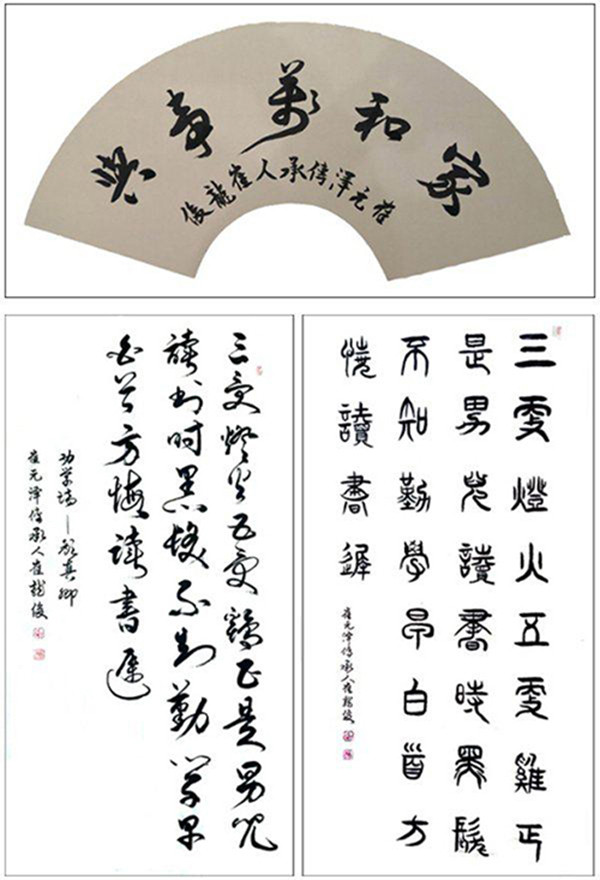 家和萬事興
崔元澤傳承人崔龍俊
三更燈火五更鷄正是男兒
讀书时黑髮不知勤学早
白首方悔读書遲
劝学诗—颜真卿
崔元泽传承人崔龍俊
三更燈火五更雞正
是男兒讀書時黑髮
不知勤學早白首方
悔讀書遲
崔元泽传承人崔龍俊